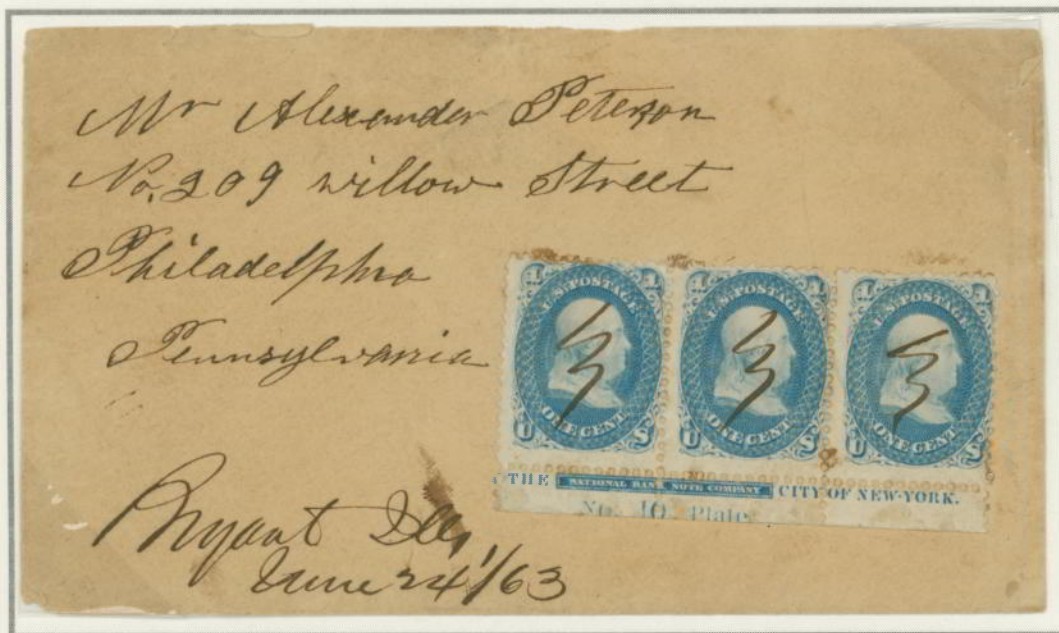 Mr Alexander Peterson
No. 209 willow Street
Philadelphia
Pennsylvania
1 1 1 1 1 1
U.S. POSTAGE U.S. POSTAGE U.S. POSTAGE
ONE CENT ONE CENT ONE CENT
U S U S U S
THE NATIONAL BANK NOTE COMPANY CITY OF NEW-YORK.
No. 10. Plate.
Bryant Ills
June 24/63